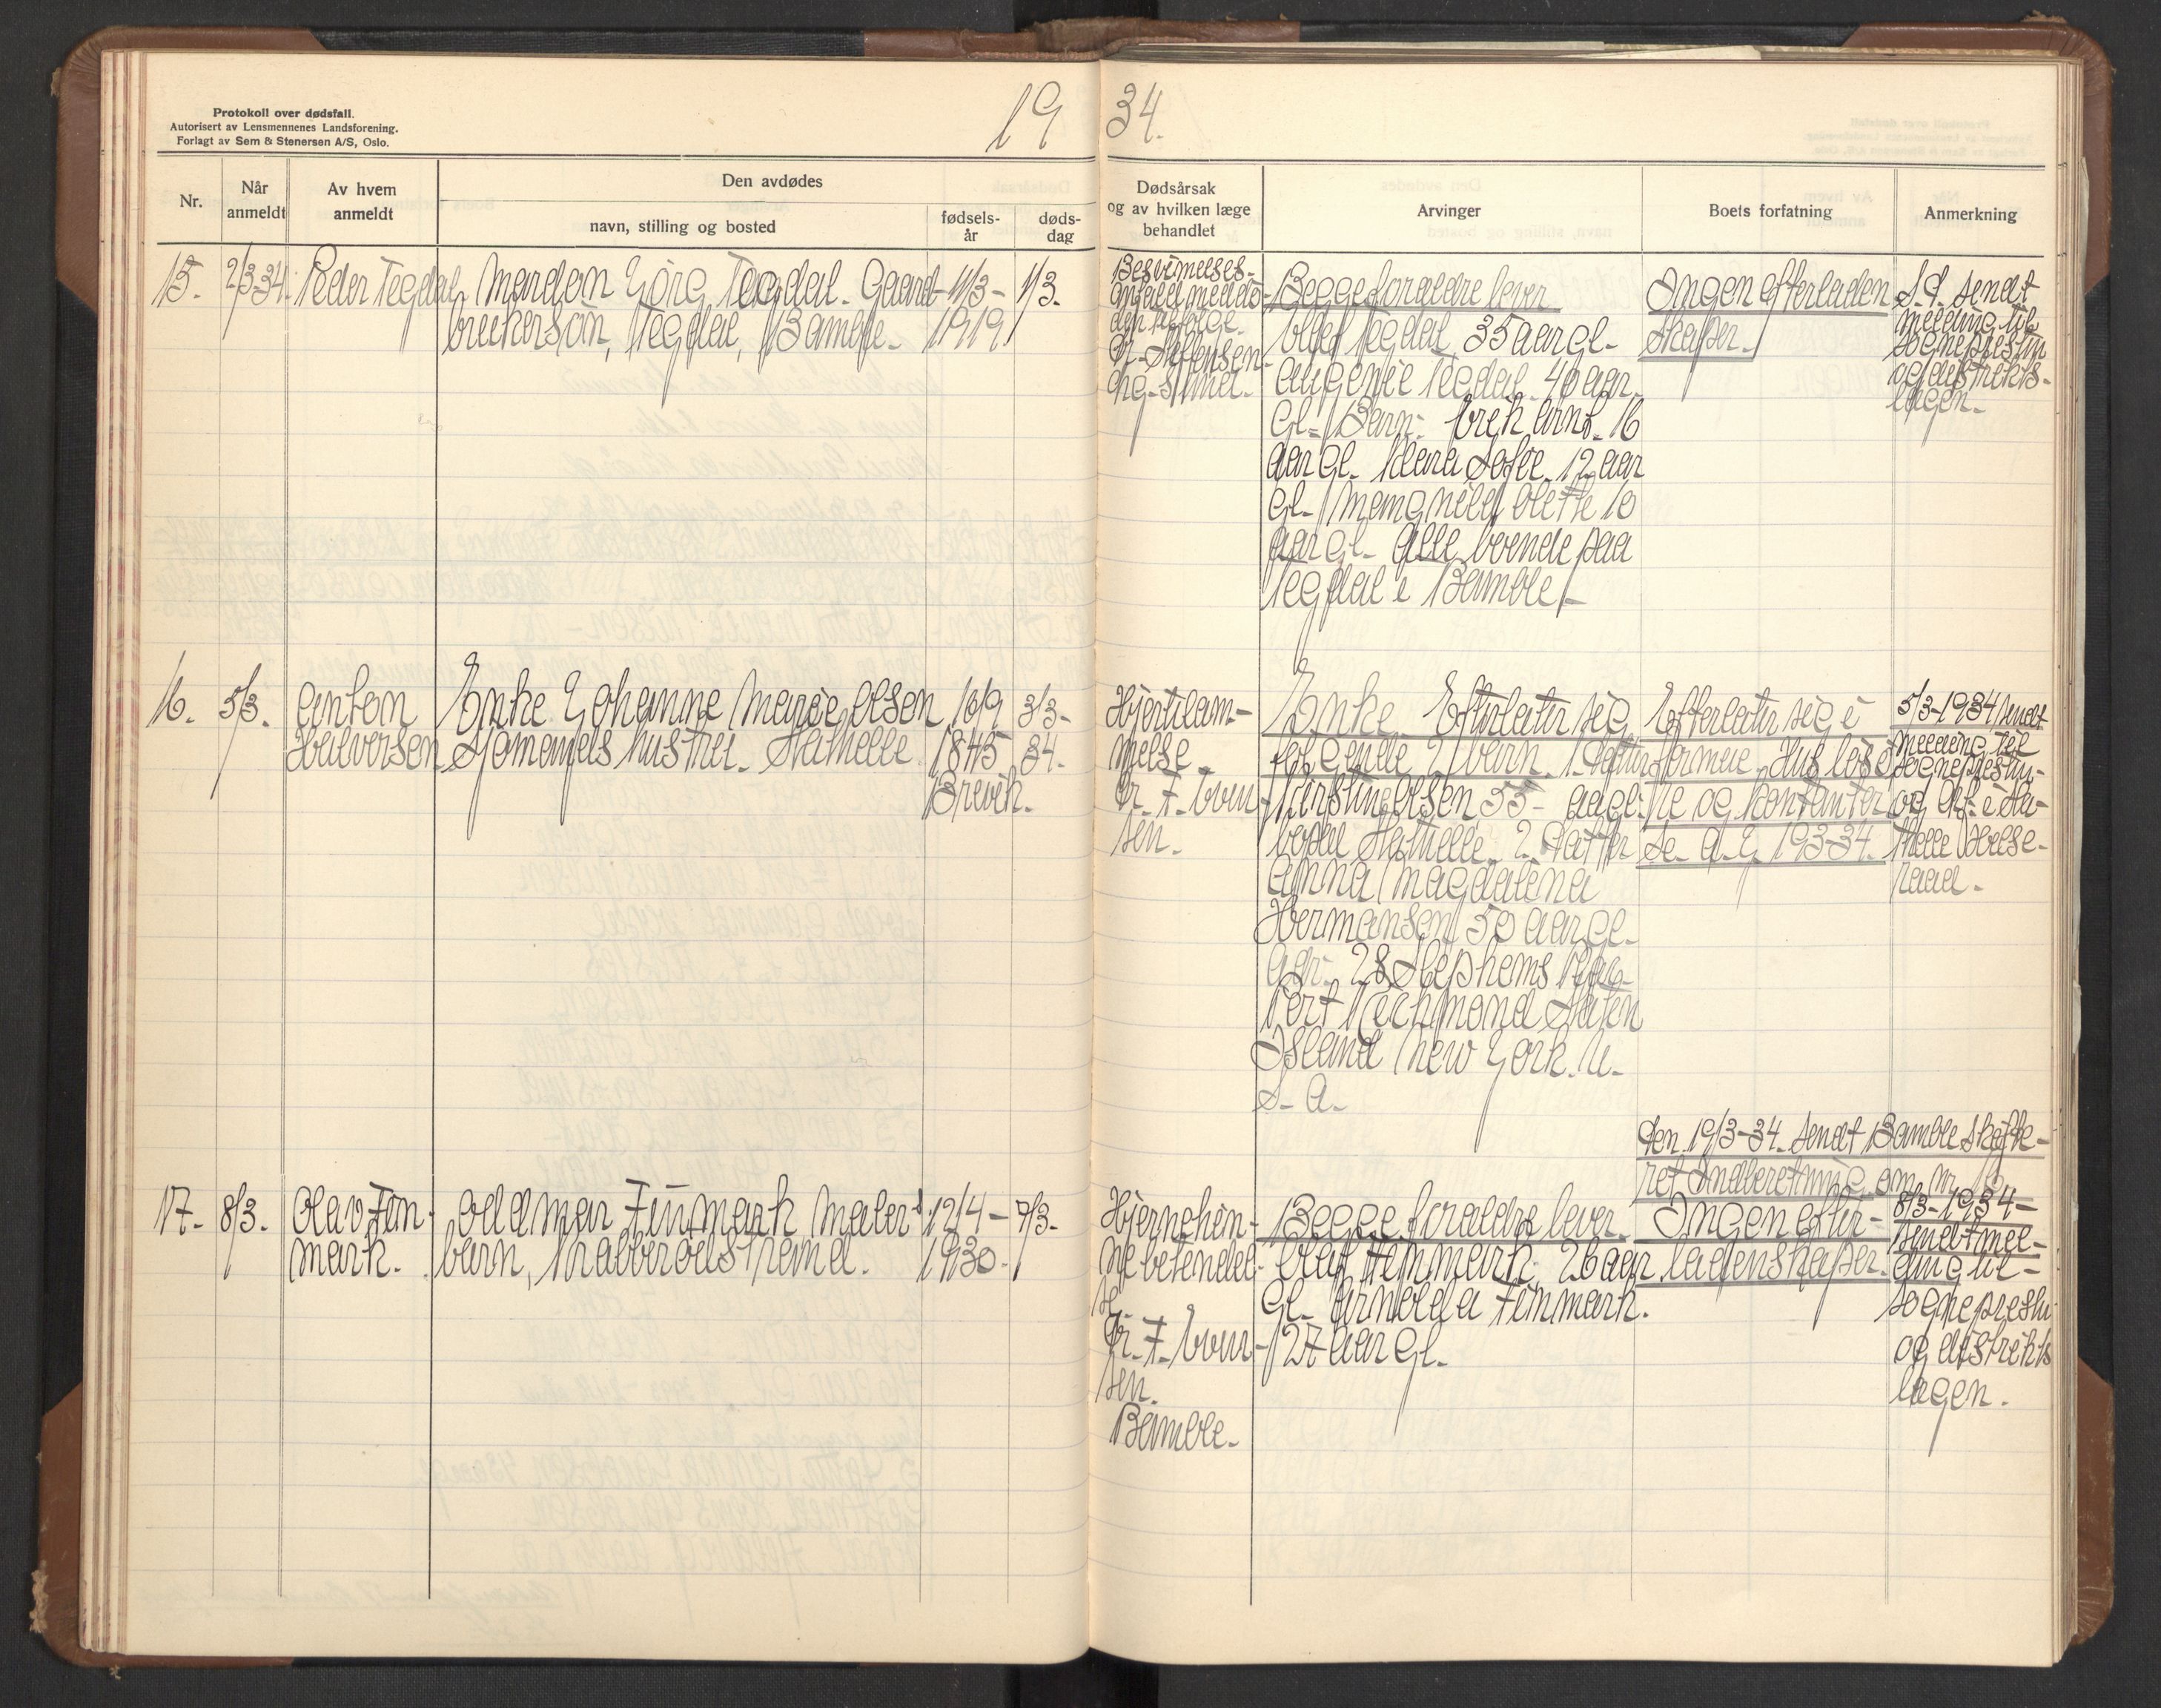 Protokoll over dødsfall.
Autorisert av Lensmennenes Landsforening.
Forlagt av Sem & Stenersen A/S, Oslo.
19 34.
Nr.
Når
anmeldt
Av hvem
anmeldt
Den avdødes
navn, stilling og bosted
fødsels-
år
døds-
dag
Dødsårsak
og av hvilken læge
behandlet
Arvinger
Boets forfatning
Anmerkning
15. 2/3-34. Peder Tegdal Mardon Jörg Tegdal. Gaard- 11/3- 1/3.
brukersön, Tegdal, Bamble. 1919.
Besvimelses-
anfald med dö-
den tilfølge.
Dr.
Begge foraldre lever
Olaf Tegdal 35 aar gl-
Eugenie Tegdal. 40 aar.
Gl- Barn: Erik Arnt. 16
aar gl. Klara Sofie. 12 aar
gl- Olette 10
aar gl- alle boende paa
Tegdal i Bamble-
Ingen efterladen
skaper.
S. d. sendt
melding til
sognepresten
og distrikts-
lægen.
16. 5/3. Anton Enke Johanne Marie Olsen 10/9 3/3-
Halversen Sjömands hustru. Stathelle. 1845 34.
Brevik.
Hjertelam-
melse
Dr. F. Ewen-
sen.
Enke. Efterlater sig
følgende 2 barn. 1. datter
Kirstine Olsen 55- aar gl.
bopæl Stathelle. 2. datter
Anna Magdalena
Hermansen 50 aar gl.
adr. 28 Stephems Plac-
Port Richmond Staten
Island New York. U-
S- A-
Efterlater sig i
formue. Hus løsö-
re og kontanter
Se. a. J. 193-34.
5/3-1934 sendt
melding til
sognepresten-
og Adf. i Sta-
thelle Helse-
raad.
Den. 19/3-34. sendt Bamble skifte-
ret Indberetning om nr 16
17. 8/3. Olav Fin- Oddmar Finmark maler 12/4- 7/3-
mark. barn, Krabberödstrand. 1930.
Hjernehin-
nebetendel-
se.
Dr. F. Ewen-
sen.
Bamble.
Begge foraldre lever.
Olaf Finmark. 26 aar
Gl. Arnolda Finmark.
27 aar gl.
Ingen efter-
ladenskaper.
8/3-1934-
sendt mel-
ding til-
sognepresten
og distrikts
lægen.